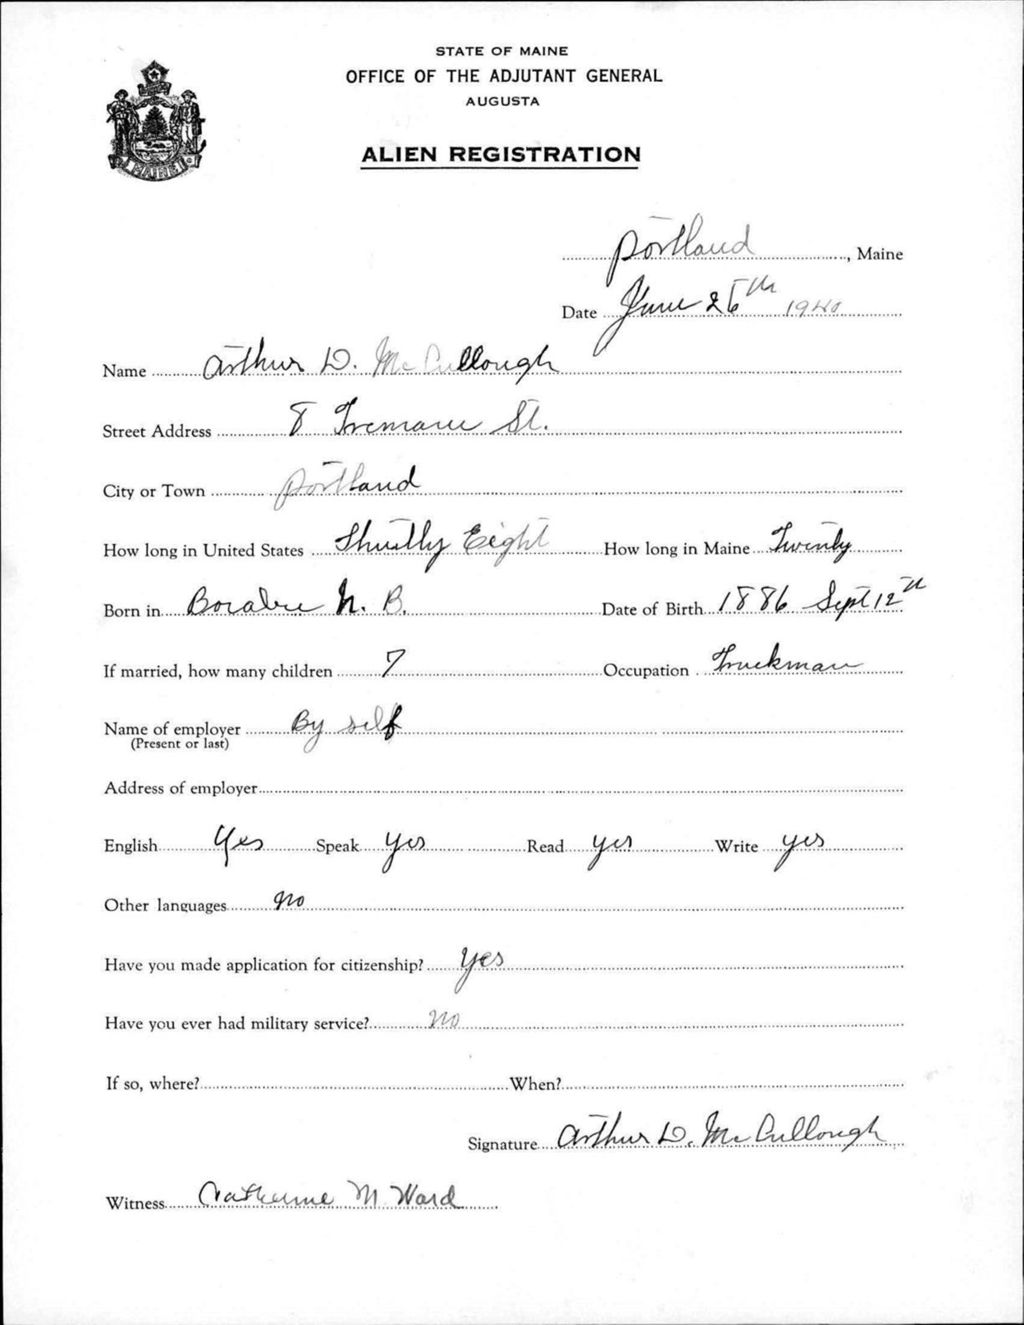 STATE OF MAINE
OFFICE OF THE ADJUTANT GENERAL
AUGUSTA
ALIEN REGISTRATION
MAINE
Portland, Maine
Date June 26th 1940
Name Arthur D. McCullough
Street Address 8 St.
City or Town Portland
How long in United States Thirtly Eight How long in Maine Twenty
Born in N. B. Date of Birth 1886 Sept 12th
If married, how many children 7 Occupation Truckman
Name of employer By self
(Present or last)
Address of employer
English Yes Speak yes Read yes Write yes
Other languages no
Have you made application for citizenship? Yes
Have you ever had military service? no
If so, where? When?
Signature Arthur D. McCullough
Witness Catherine M Ward